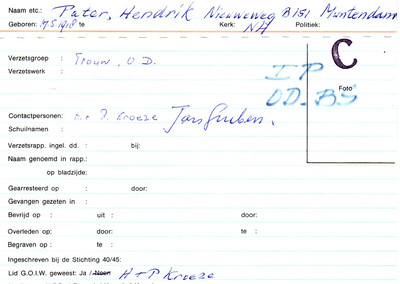 Naam etc.: Pater, Hendrik Nieuweweg B151 Muntendam
Geboren: 17.5.1918 te Kerk: NH Politiek:
C
Verzetsgroep : Trouw, O.D.
Verzetswerk :
I P
Foto
OD. BS
Contactpersonen: Mr P. Kroeze Jan
Schuilnamen :
Verzetsrapp. ingel. dd. : bij:
Naam genoemd in rapp.:
op bladzijde:
Gearresteerd op : door:
Gevangen gezeten in :
Bevrijd op : uit : door:
Overleden op: door: te :
Begraven op : te :
Ingeschreven bij de Stichting 40/45:
Lid G.O.I.W. geweest: Ja / Neen H+P Kroeze